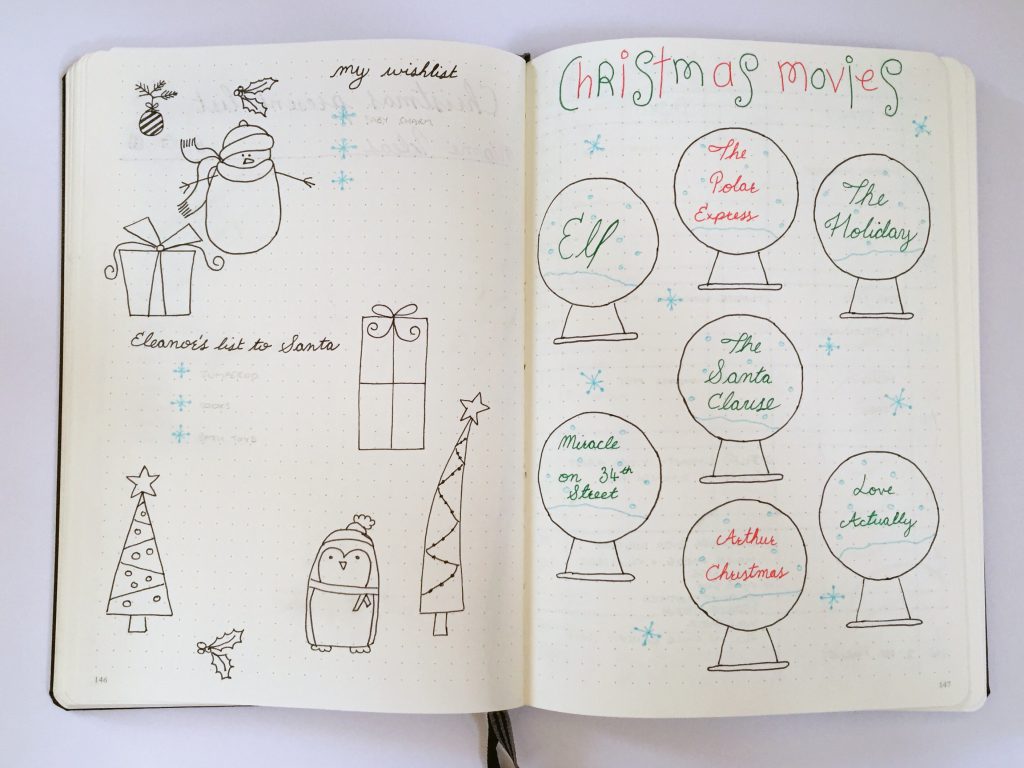 my wishlist
BABY SHARK
Eleanor's list to Santa
BOOKS
BATH TOYS
146
Christmas movies
The
Polar
Express
The
Holiday
Elf
The
Santa
Clause
Miracle
on 34th
Street
Love
Actually
Arthur
Christmas
147